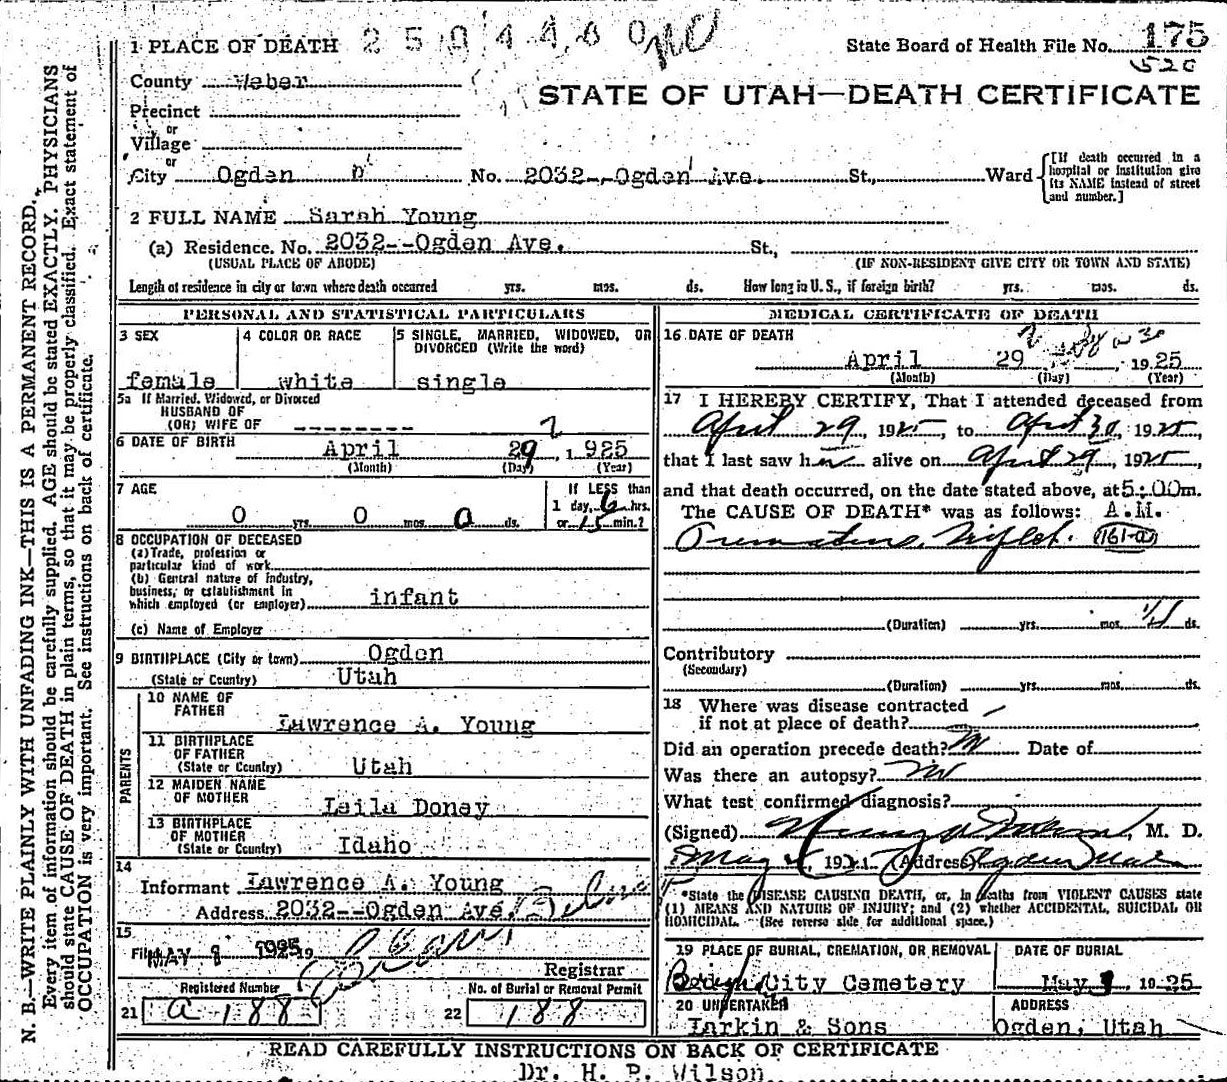 1 PLACE OF DEATH
State Board of Health File No. 175
520
County Weber
STATE OF UTAH—DEATH CERTIFICATE
Precinct
or
Village
or
City Ogden No. 2032--Ogden Ave. St., Ward [If death occurred in a hospital or institution give its NAME instead of street and number.]
2 FULL NAME Sarah Young
(a) Residence. No. 2032--Ogden Ave. St.,
(USUAL PLACE OF ABODE) (IF NON-RESIDENT GIVE CITY OR TOWN AND STATE)
Length of residence in city or town where death occurred yrs. mos. ds. How long in U. S., if foreign birth? yrs. mos. ds.
PERSONAL AND STATISTICAL PARTICULARS
3 SEX
female
4 COLOR OR RACE
white
5 SINGLE, MARRIED, WIDOWED, OR
DIVORCED (Write the word)
single
5a If Married, Widowed, or Divorced
HUSBAND OF
(OR) WIFE OF --------
6 DATE OF BIRTH April 29 1925
(Month) (Day) (Year)
7 AGE
0 yrs. 0 mos. 0 ds.
If LESS than
1 day, 6 hrs.
or 15 min.?
8 OCCUPATION OF DECEASED
(a) Trade, profession or
particular kind of work
(b) General nature of industry,
business, or establishment in
which employed (or employer) infant
(c) Name of Employer
9 BIRTHPLACE (City or town) Ogden
(State or Country) Utah
PARENTS
10 NAME OF
FATHER
Lawrence A. Young
11 BIRTHPLACE
OF FATHER
(State or Country) Utah
12 MAIDEN NAME
OF MOTHER Leila Doney
13 BIRTHPLACE
OF MOTHER
(State or Country) Idaho
14
Informant Lawrence A. Young
Address 2032--Ogden Ave.
15
Filed MAY 1925 19
Registrar
Registered Number No. of Burial or Removal Permit
21 a 188 22 188
MEDICAL CERTIFICATE OF DEATH
16 DATE OF DEATH
April 29, 1925
(Month) (Day) (Year)
17 I HEREBY CERTIFY, That I attended deceased from
April 29, 1925, to April 30, 1925,
that I last saw her alive on April 29, 1925,
and that death occurred, on the date stated above, at 5:00 m.
The CAUSE OF DEATH* was as follows: A.M.
Premature. Triplet. 161-a
(Duration) yrs. mos. ds.
Contributory
(Secondary)
(Duration) yrs. mos. ds.
18 Where was disease contracted
if not at place of death?
Did an operation precede death? no Date of
Was there an autopsy? no
What test confirmed diagnosis?
(Signed) , M. D.
May 192 (Address) Ogden Utah
*State the DISEASE CAUSING DEATH, or, in deaths from VIOLENT CAUSES state
(1) MEANS AND NATURE OF INJURY; and (2) whether ACCIDENTAL, SUICIDAL OR
HOMICIDAL. (See reverse side for additional space.)
19 PLACE OF BURIAL, CREMATION, OR REMOVAL
City Cemetery
DATE OF BURIAL
May 1925
20 UNDERTAKER
Larkin & Sons
ADDRESS
Ogden, Utah
READ CAREFULLY INSTRUCTIONS ON BACK OF CERTIFICATE
Dr. H. P. Wilson
N. B.—WRITE PLAINLY WITH UNFADING INK—THIS IS A PERMANENT RECORD.
Every item of information should be carefully supplied. AGE should be stated EXACTLY. PHYSICIANS
should state CAUSE OF DEATH in plain terms, so that it may be properly classified. Exact statement of
OCCUPATION is very important. See instructions on back of certificate.